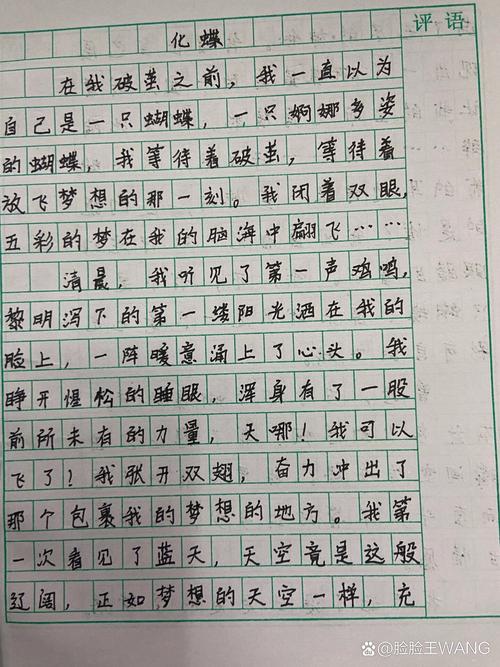 评语
化蝶
在我破茧之前，我一直以为
自己是一只蝴蝶，一只婀娜多姿
的蝴蝶，我等待着破茧，等待着
放飞梦想的那一刻。我闭着双眼，
五彩的梦在我的脑海中翩飞……
清晨，我听见了第一声鸡鸣，
黎明泻下的第一缕阳光洒在我的
脸上，一阵暖意涌上了心头。我
睁开惺松的睡眼，浑身有了一股
前所未有的力量，天哪！我可以
飞了？我张开双翅，奋力冲出了
那个包裹我的梦想的地方。我第
一次看见了蓝天，天空竟是这般
辽阔，正如梦想的天空一样，充
@脸脸王WANG